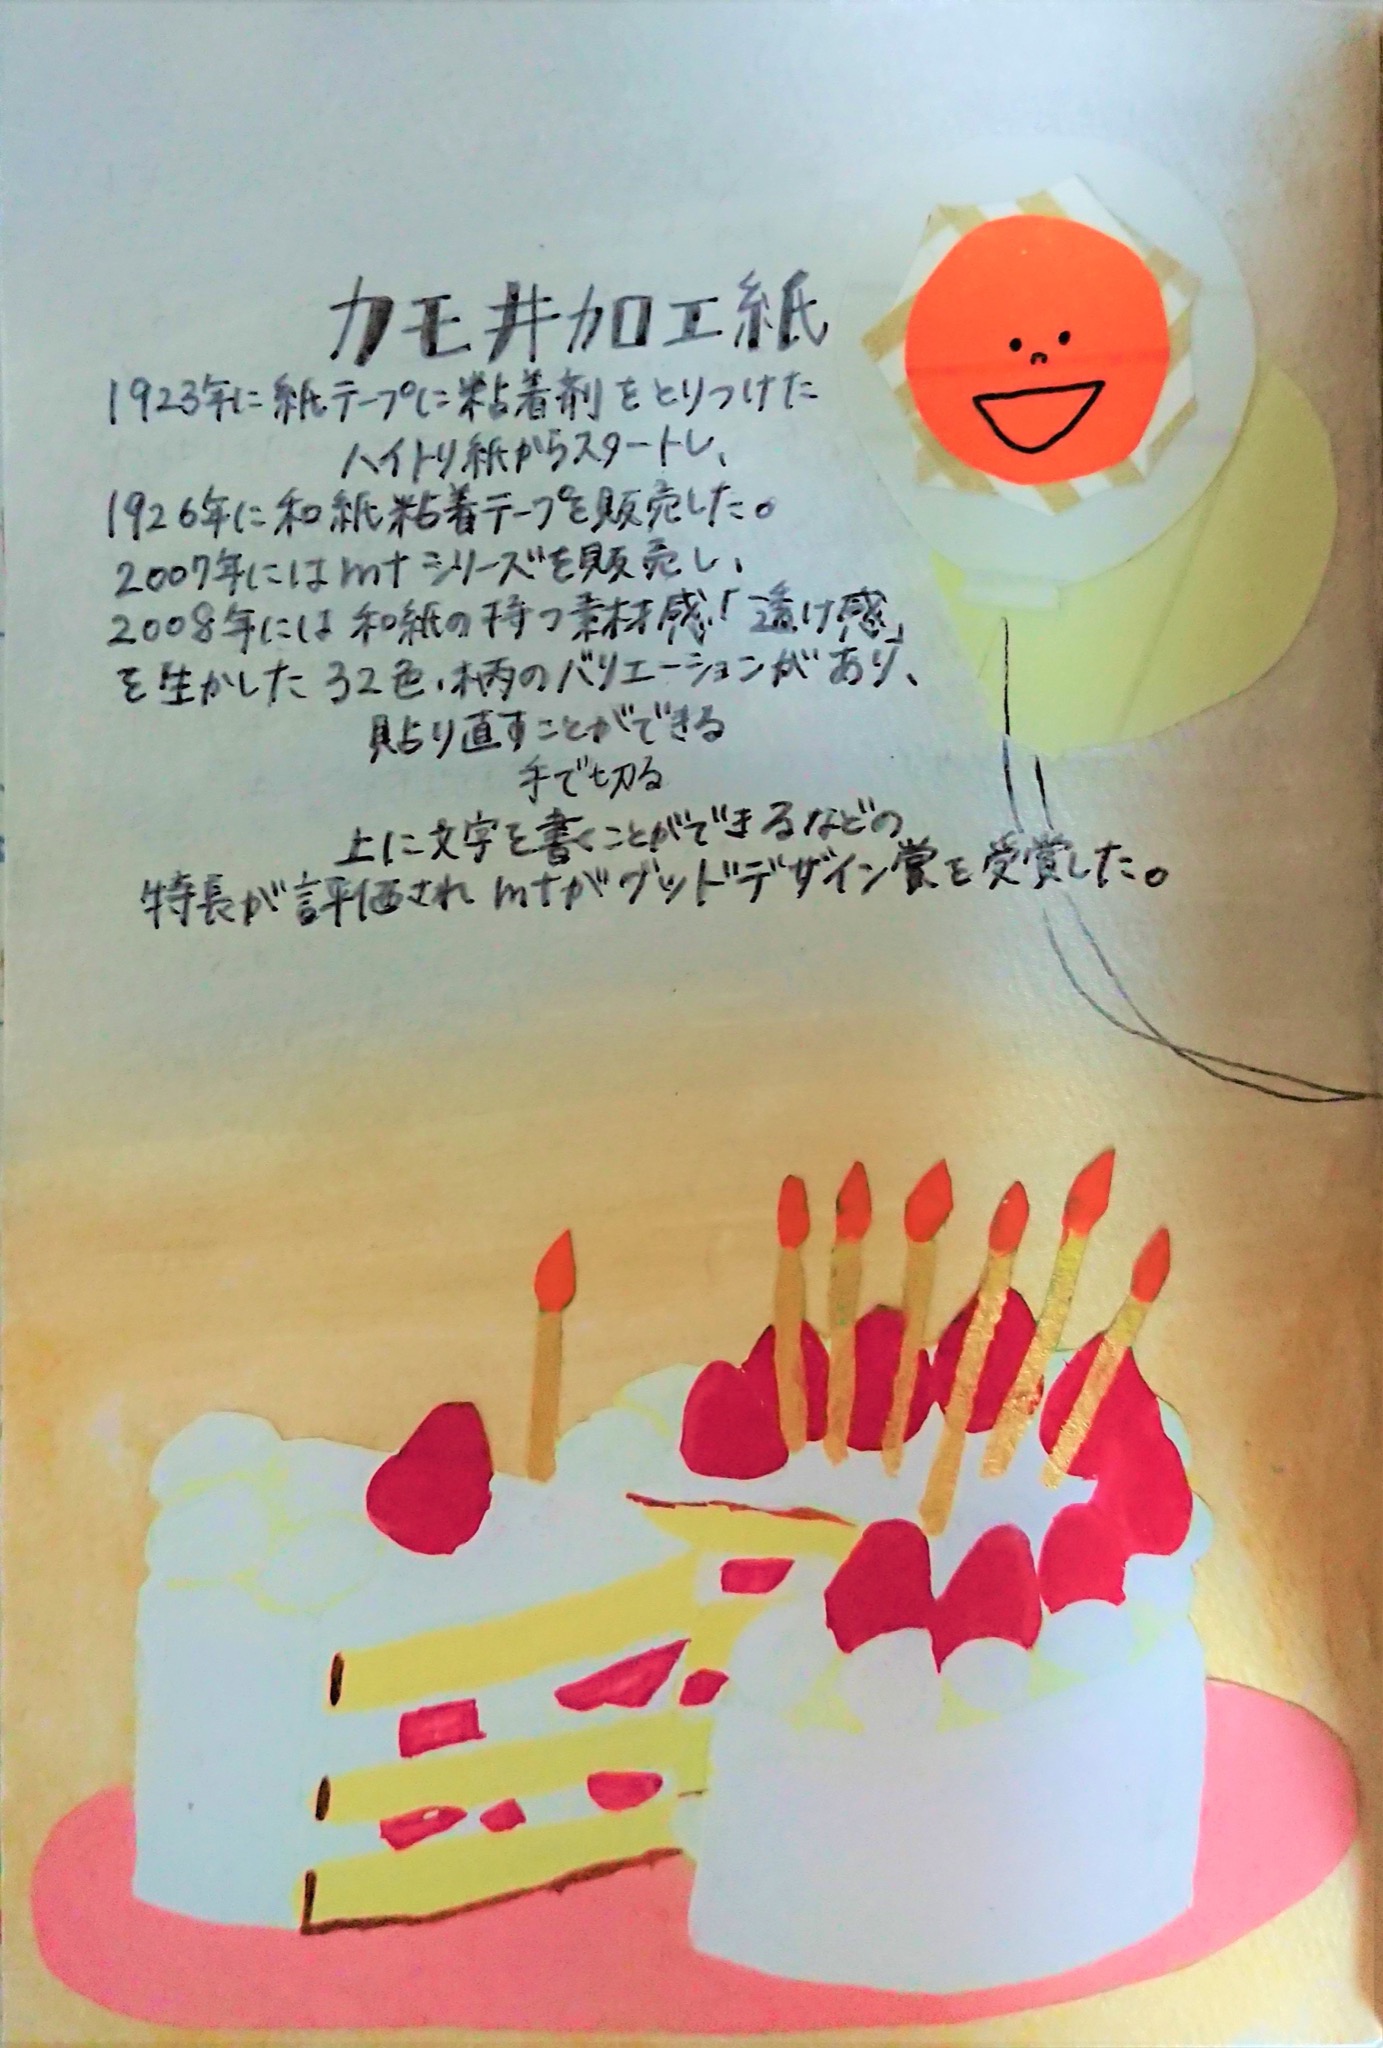 カモ井加工紙
1923年に紙テープに粘着剤をとりつけた
ハイトリ紙からスタートし、
1926年に和紙粘着テープを販売した。
2007年にはmtシリーズを販売し、
2008年には和紙の持つ素材感「透け感」
を生かした32色、柄のバリエーションがあり、
貼り直すことができる
手で切る
上に文字を書くことができるなどの
特長が評価されmtがグッドデザイン賞を受賞した。